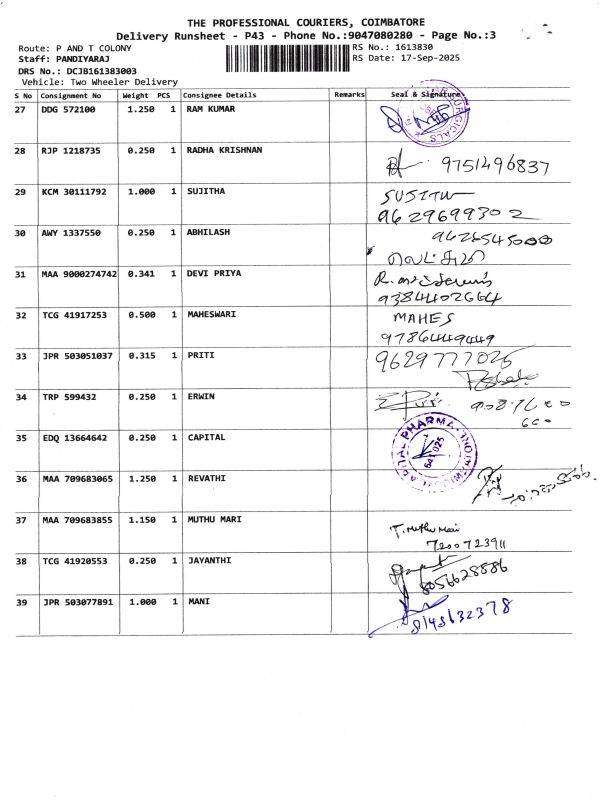 THE PROFESSIONAL COURIERS, COIMBATORE
Delivery Runsheet - P43 - Phone No.:9047080280 - Page No.:3
Route: P AND T COLONY
RS No.: 1613830
Staff: PANDIYARAJ
RS Date: 17-Sep-2025
DRS No.: DCJB161383003
Vehicle: Two Wheeler Delivery
S No Consignment No Weight PCS Consignee Details Remarks Seal & Signature
27 DDG 572100 1.250 1 RAM KUMAR
SURGICALS
28 RJP 1218735 0.250 1 RADHA KRISHNAN
9751496837
29 KCM 30111792 1.000 1 SUJITHA
9629699302
30 AWY 1337550 0.250 1 ABHILASH
31 MAA 9000274742 0.341 1 DEVI PRIYA
9384402664
32 TCG 41917253 0.500 1 MAHESWARI MAHES
9786449449
33 JPR 503051037 0.315 1 PRITI
9629777025
34 TRP 599432 0.250 1 ERWIN
35 EDQ 13664642 0.250 1 CAPITAL
PHARMA
641 025
36 MAA 709683065 1.250 1 REVATHI
37 MAA 709683855 1.150 1 MUTHU MARI T. Muthu Mari
7200723911
38 TCG 41920553 0.250 1 JAYANTHI
8056628886
39 JPR 503077891 1.000 1 MANI
8148632378